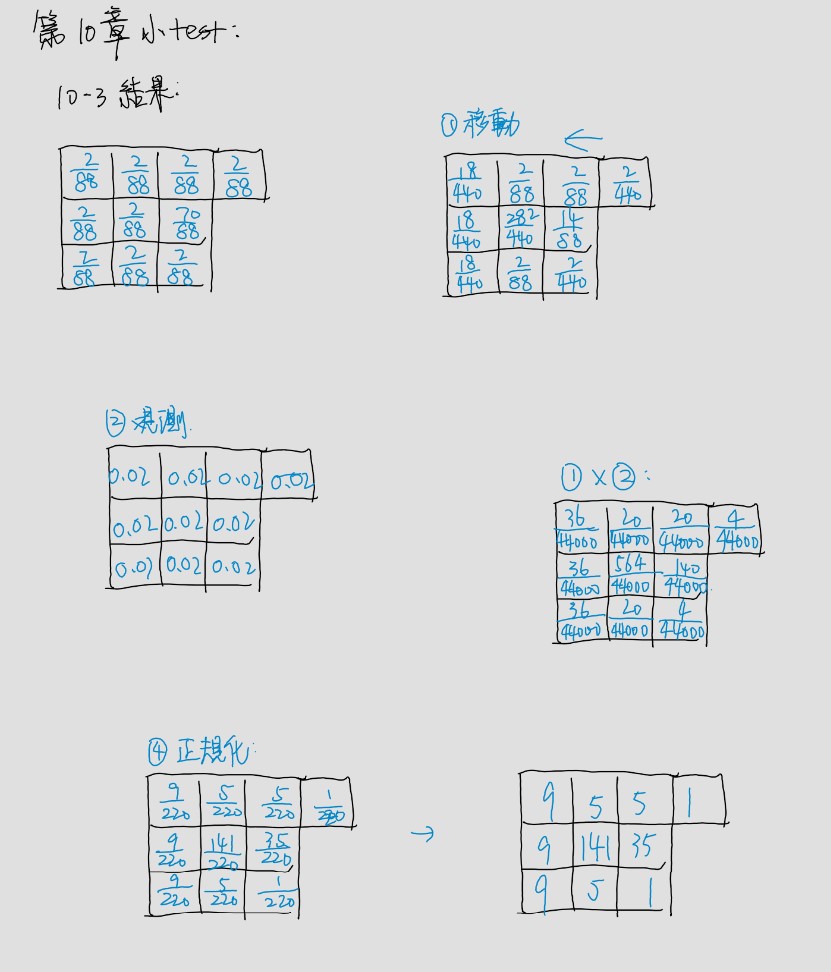 第10章 小test:
10-3 結果:
2/88 2/88 2/88 2/88
2/88 2/88 70/88
2/88 2/88 2/88
① 移動 ←
18/440 2/88 2/88 2/440
18/440 282/440 14/88
18/440 2/88 2/440
② 観測
0.02 0.02 0.02 0.02
0.02 0.02 0.02
0.02 0.02 0.02
① × ② :
36/44000 20/44000 20/44000 4/44000
36/44000 564/44000 140/44000
36/44000 20/44000 4/44000
④ 正規化:
9/220 5/220 5/220 1/220
9/220 141/220 35/220
9/220 5/220 1/220
→
9 5 5 1
9 141 35
9 5 1